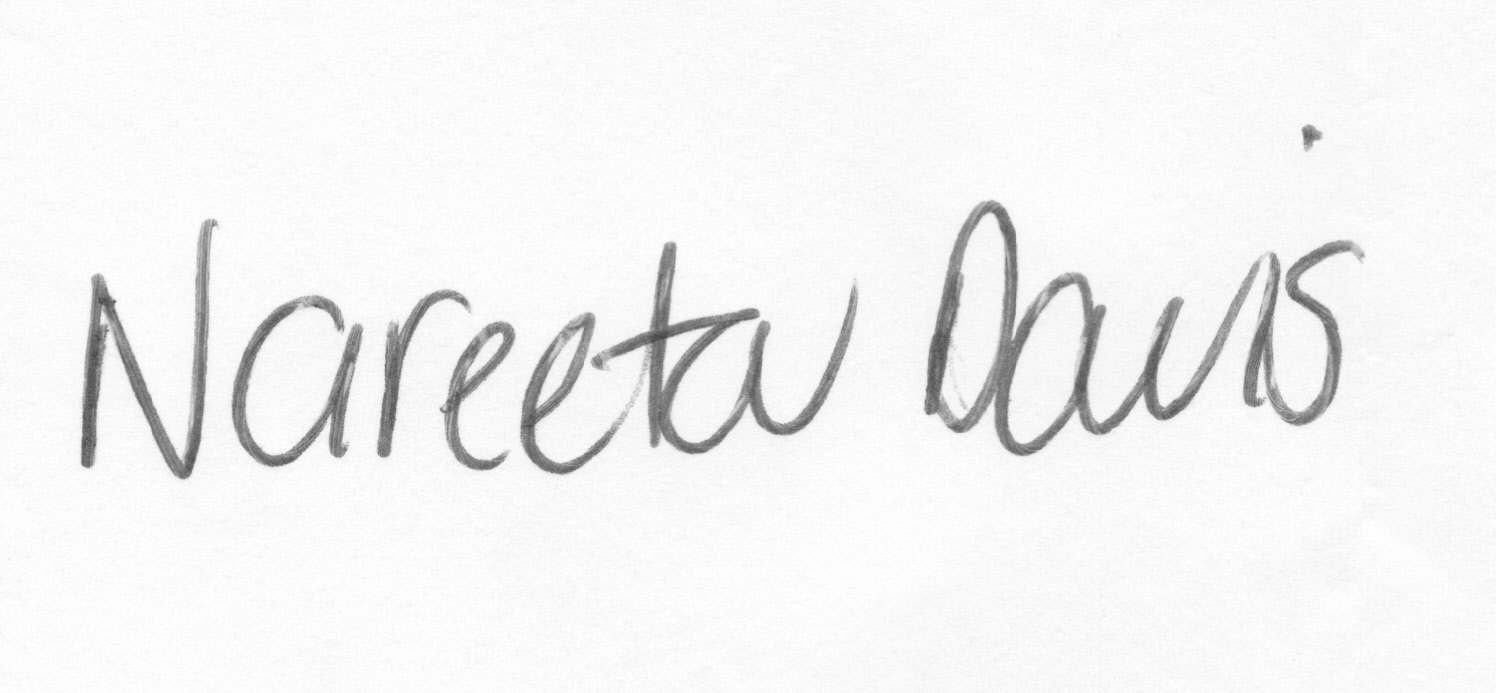 Nareeta Davis